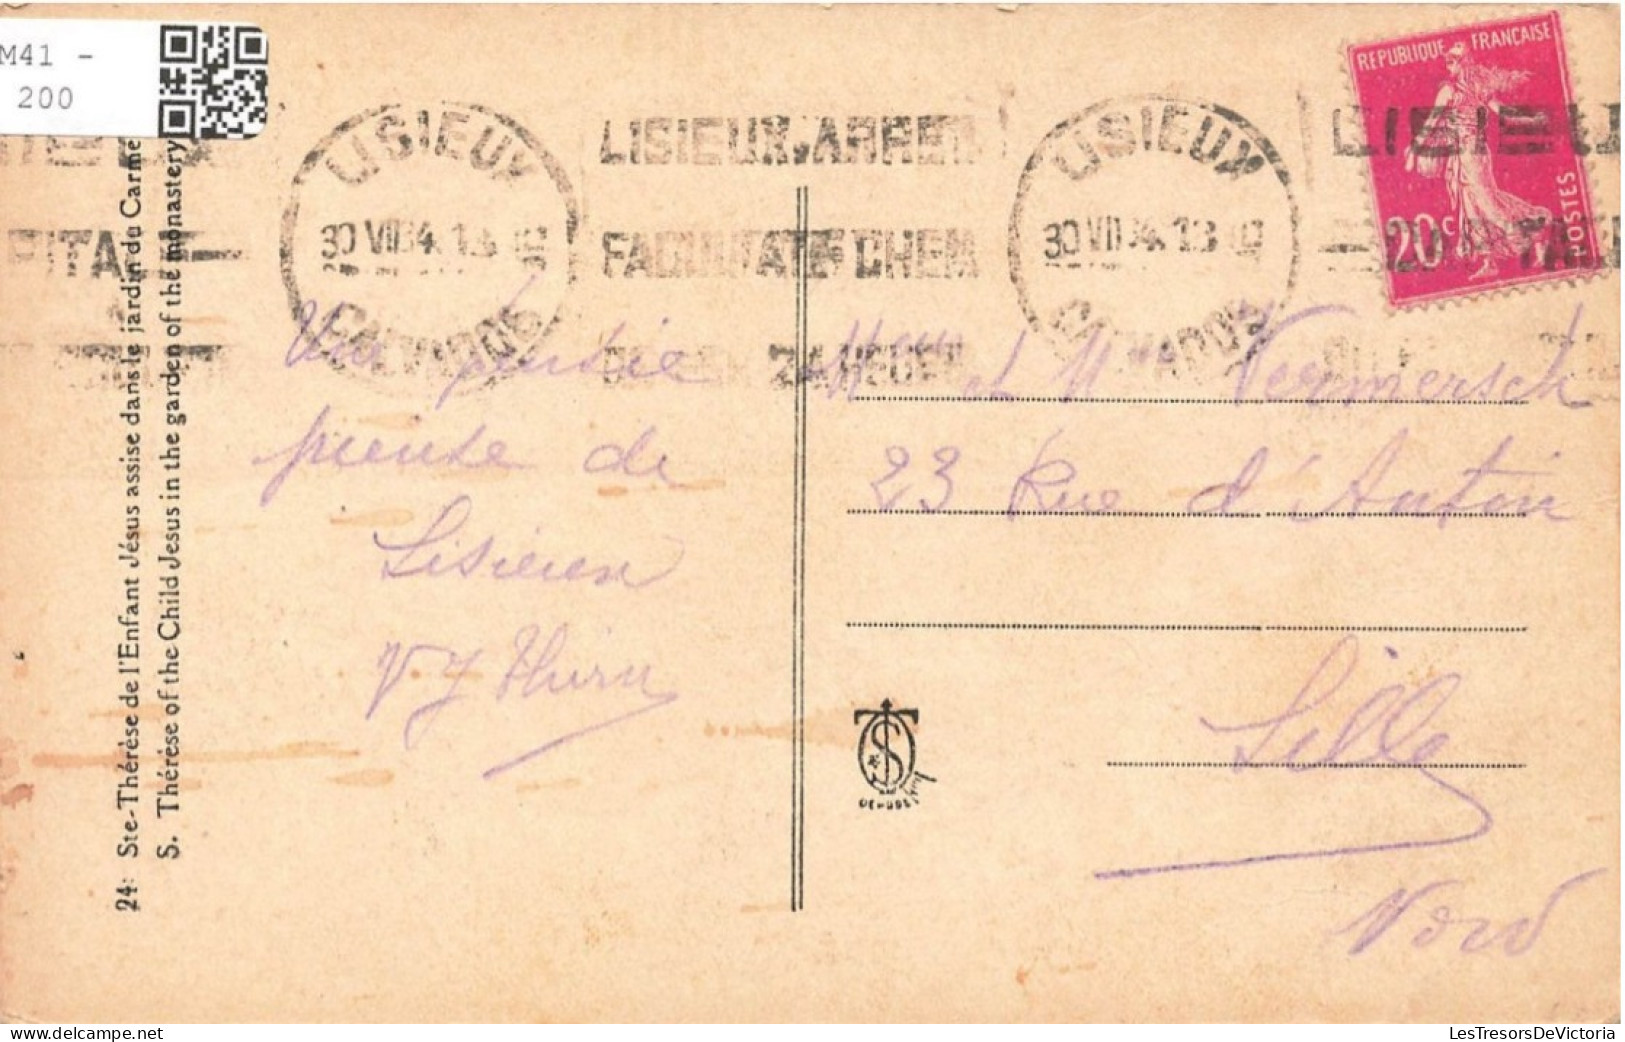 M41 -
200
24: Ste-Thérèse de l'Enfant Jésus assise dans le jardin du Carme
S. Thérèse of the Child Jesus in the garden of the monastery
LISIEUX
30 VII 34. 13
CALVADOS
LISIEUX.ARRET
FACULTATIF CHEM
LISIEUX
30 VII 34. 13
CALVADOS
LISIEU
REPUBLIQUE FRANÇAISE
20c
POSTES
Une pensée
pieuse de
Lisieux
M et Mme Vermersch
23 Rue d'Antin
Lille
Nord
LesTresorsDeVictoria